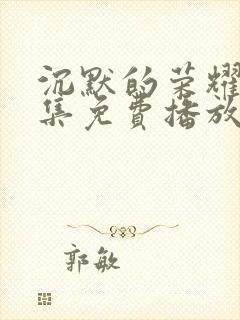 沉默的荣耀
集免费播放
郭敏